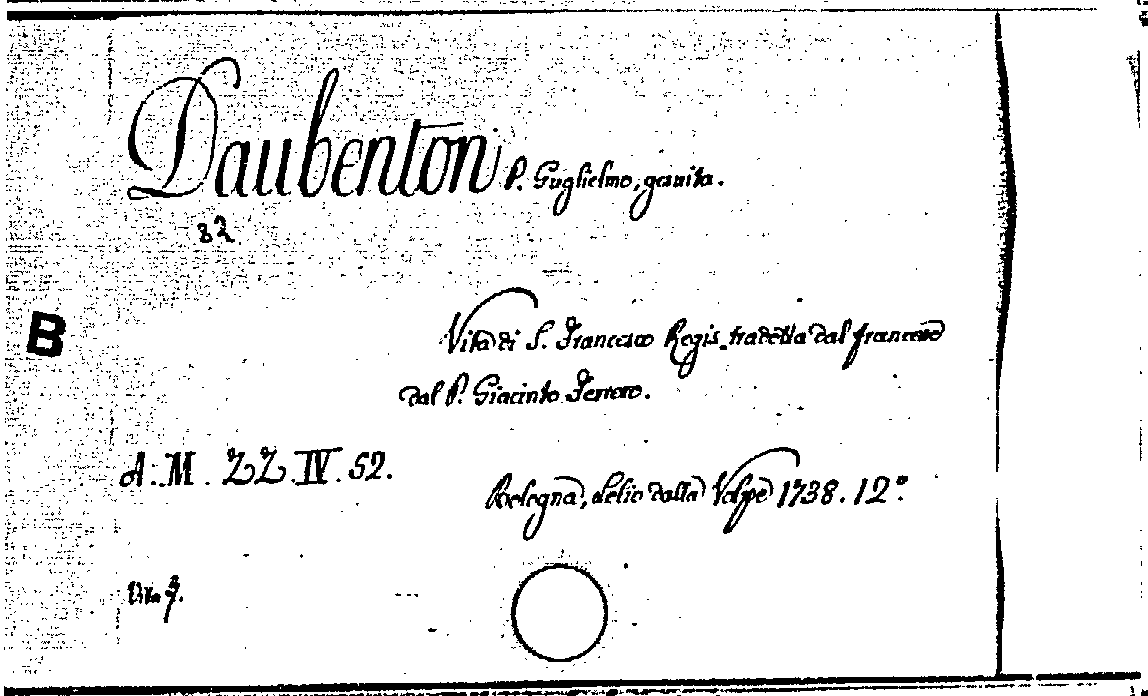 Daubenton P. Guglielmo, gesuita.
82
B
Vita di S. Francesco Regis tradotta dal francese
dal P. Giacinto Ferrero.
A. M. ZZ. IV. 52.
Bologna, Lelio dalla Volpe 1738. 12°.
Vita